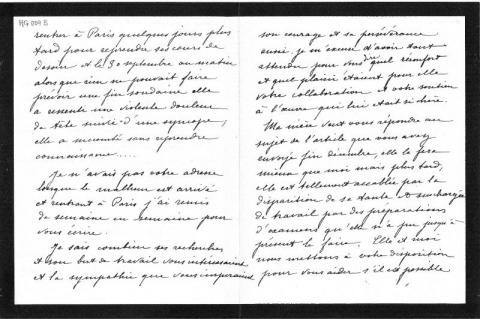 HG 009 B
rentrer à Paris quelques jours plus
tard pour reprendre ses cours de
dessin et le 30 septembre au matin
alors que rien ne pouvait faire
prévoir une fin soudaine elle
a ressenti une violente douleur
de tête suivie d'une syncope,
elle a succombé sans reprendre
connaissance.....
Je n'avais pas votre adresse
lorsque le malheur est arrivé
et rentrant à Paris j'ai remis
de semaine en semaine pour
vous écrire.
Je sais combien ses recherches
et son but de travail vous intéressaient
et la sympathie que vous inspiraient
son courage et sa persévérance
aussi je m'excuse d'avoir tant
attendu pour vous dire quel réconfort
et quel plaisir étaient pour elle
votre collaboration et votre soutien
à l'œuvre qui lui était si chère.
Ma mère veut vous répondre au
sujet de l'article que vous avez
envoyé fin décembre, elle le fera
mieux que moi mais plus tard,
elle est tellement accablée par la
disparition de sa tante et surchargée
de travail par des préparations
d'examens qu'elle n'a pu jusqu'à
présent le faire. Elle et moi
nous mettons à votre disposition
pour vous aider s'il est possible